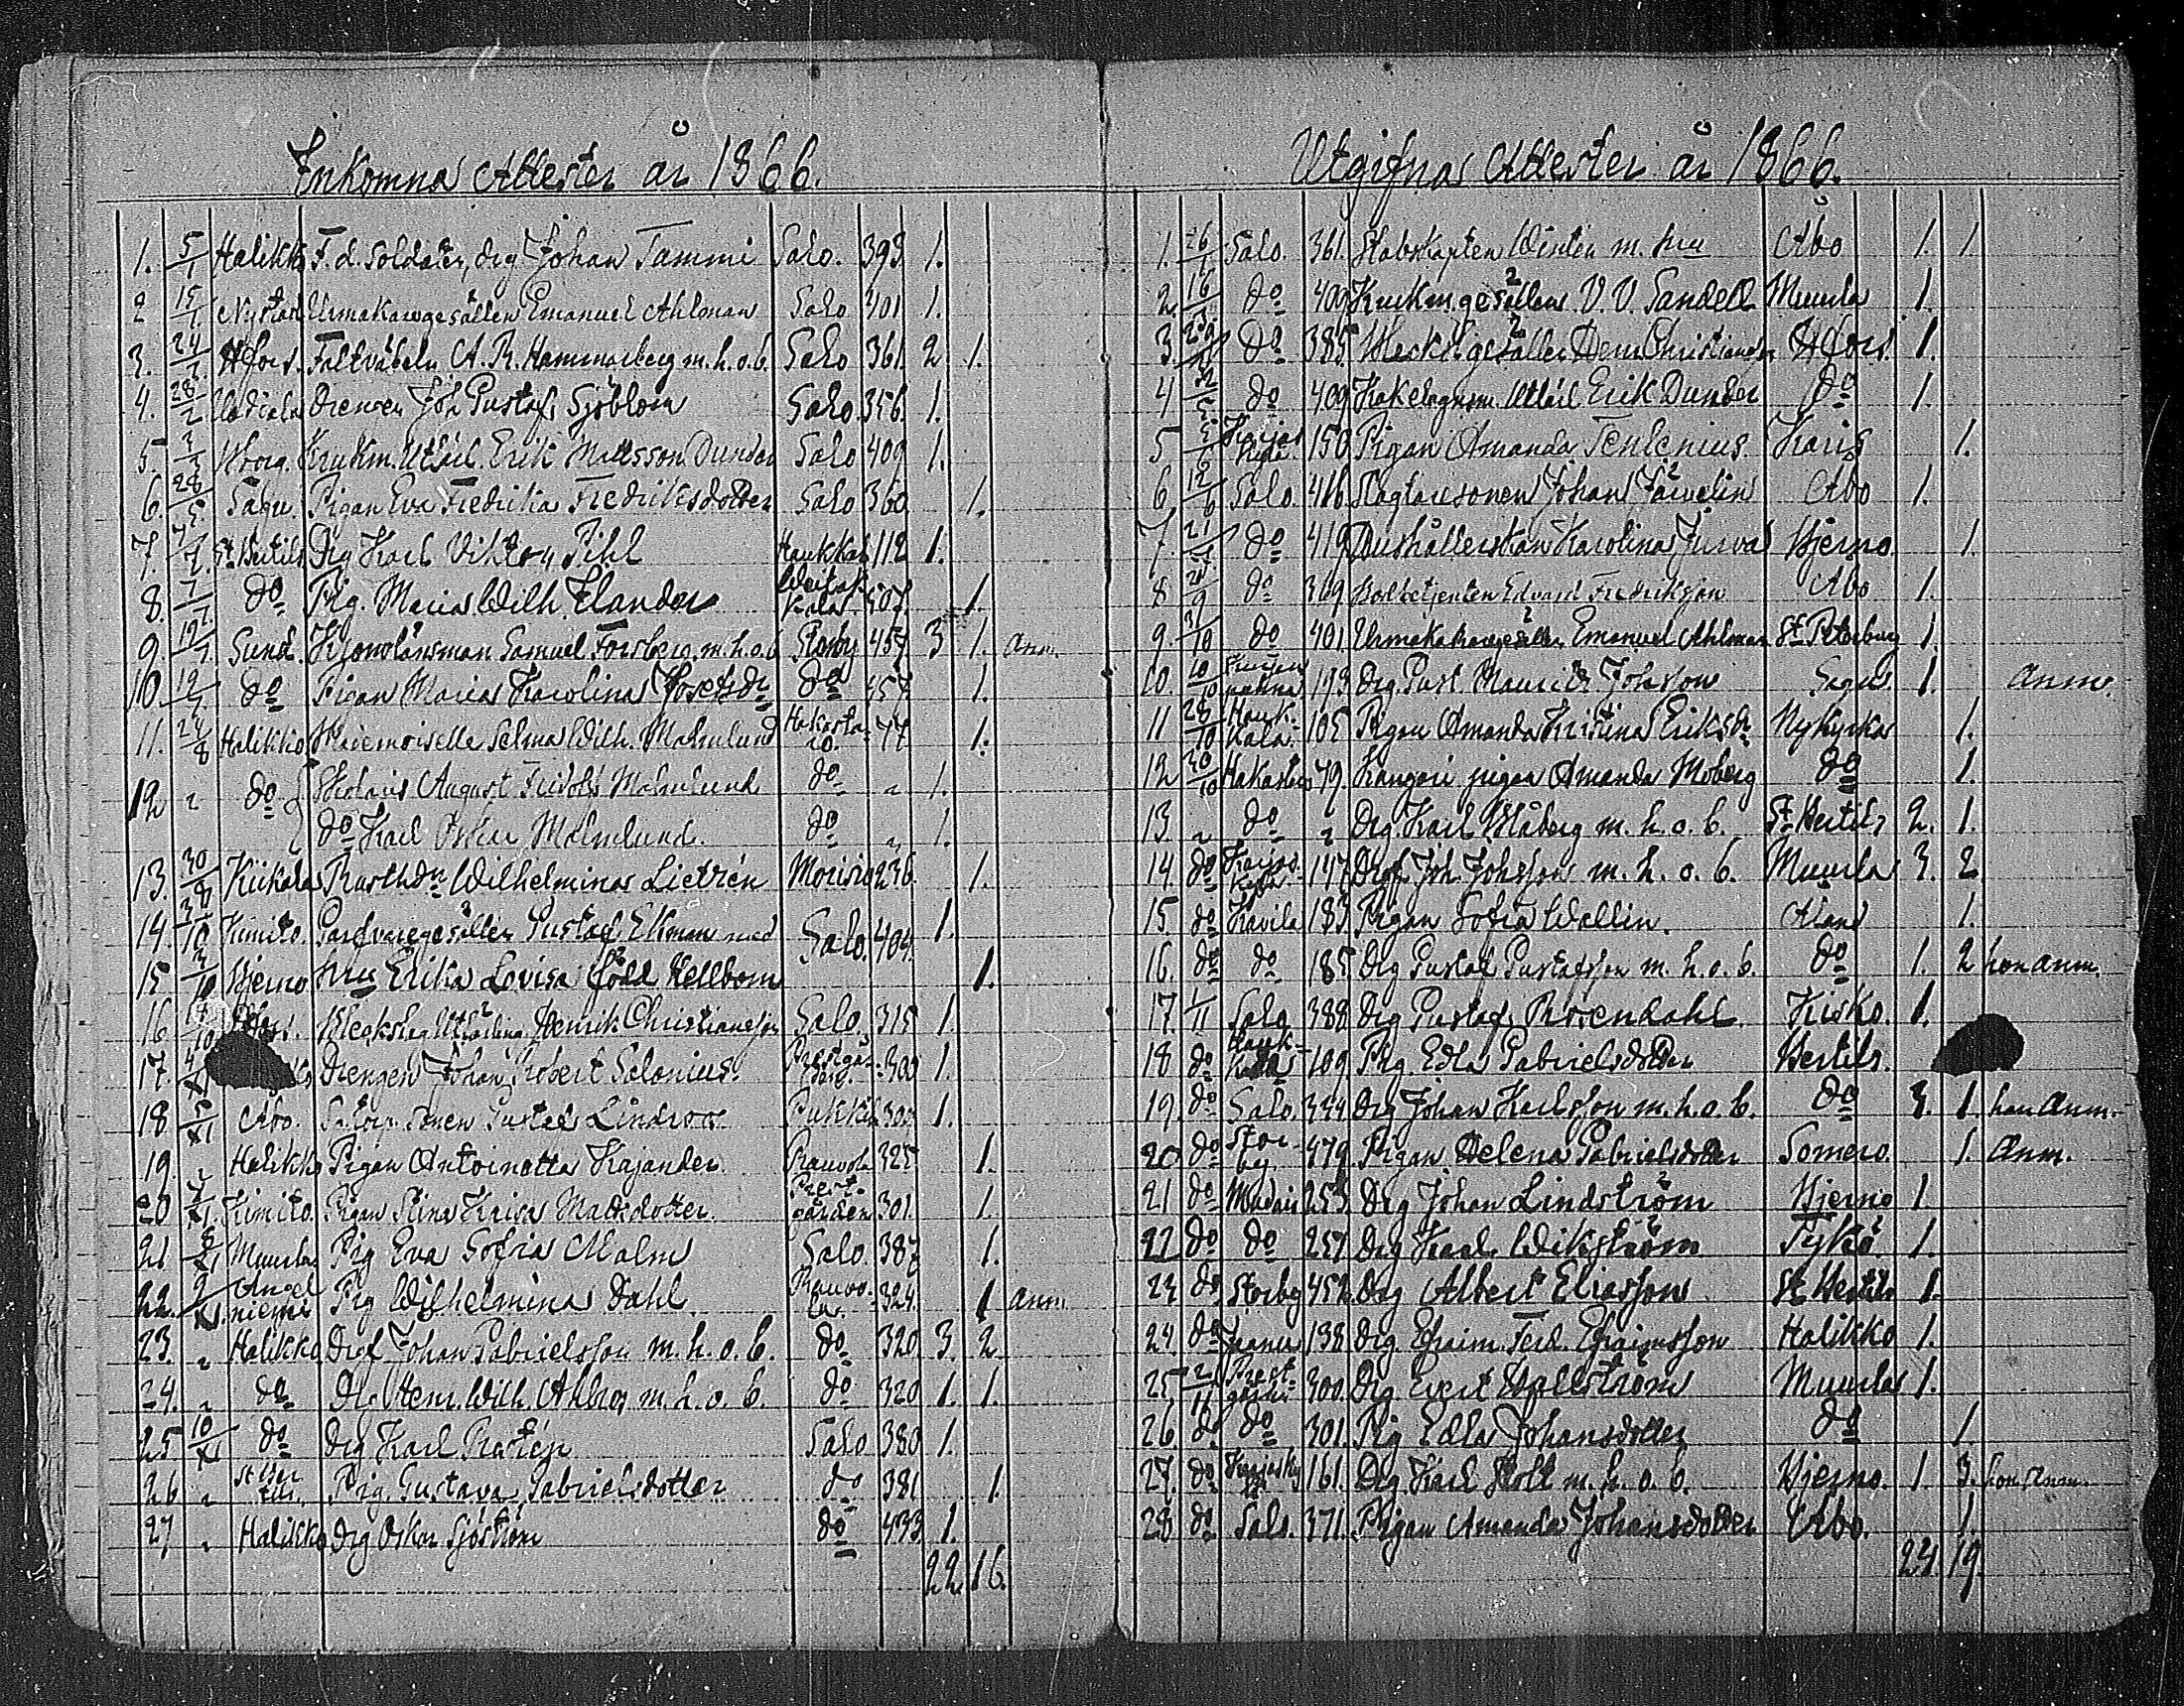 Inkomna Attester år 1866.
1. 5/1 Halikko F. d. Soldaten, drg Johan Tammi Salo. 393. 1.
2 15/1 Nystad Urmakaregesällen Emanuel Ahlman Salo 401 1.
3. 24/1 Hfors. Fältväbeln A. R. Hammarberg m. h. o. b. Salo 361 2 1.
4. 28/2 Uskela Drengen Joh Gustaf Sjöblom Salo. 356. 1.
5. 3/3 Wborg. Krukm. Utlärl. Erik Mattsson Dunder Salo 409 1.
6. 28/5. Sagu. Pigan Eva Fredrika Fredriksdotter Salo 360 1.
7. St. Bertils Drg Karl Viktor Pihl Haukkala 112 1.
8. 7/7. do Pig. Maria Wilh. Elander 1.
9. 19/7 Sund. Kronolänsman Samuel Forsberg m. h. o. b Storby 457 3 1. Anm.
10. 19/7 do Pigan Maria Karolina Josefsdr do 457 1.
11. 24/8 Halikko Mademoiselle Selma Wilh. Malmlund Hakosta- ro. 77 1.
12 " do August Fridolf Malmlund do " 1.
do Karl Oskar Malmlund. do " 1.
13. 30/8 Kiikala Rusthdr Wilhelmina Lietzén Moisio 236. 1.
14. /10 Kimito. Garfvaregesällen Gustaf Ekman med Salo. 404. 1.
15 3/10 Bjerno hru Erika Lovisa född Hellbom 1.
16 /10 Blecksleg Utlärling Henrik Christiansson Salo. 315 1.
17. 4/XI Drengen Johan Robert Salonius. Prestgår- den. 300 1.
18 5/XI Åbo. Sonen Gustaf Lindroos Pukkila 303 1.
19. " Halikko Pigan Antoinetta Kajander. Rauvola 325 1.
20 /XI. Kimito. Pigan Stina Kaisa Mattsdotter. Prest- gården 301. 1.
21 8/XI Muurla Pig Eva Sofia Malm Salo. 387 1.
22. 9/XI. Angel niemi Pig Wilhelmina Dahl Rauvo- la. 324. 1 Anm.
23. " Halikko Drg Johan Gabrielsson m. h. o. b. do 320 3. 2
24. " do Dr Henr. Wilh. Ahlros m. h. o. b. do 320 1. 1.
25 10/XI do Drg Karl Rosten Salo 380 1.
26 " St Ber tils. Pig. Gustava Gabrielsdotter do 381 1
27 " Halikko Drg Oskar Sjöström do 433 1.
22 16.
Utgifna Attester år 1866.
1. 26/1 Salo. 361. Stabskapten Wintén m. hru Åbo 1. 1
2. 16/ do 409 Krukm.gesällen V. V. Sandell Muurla 1.
3. do 385. Blecksl.gesällen Henr Christiansson Hfors. 1.
4 do 409 Kakelugnsm. Utlärl Erik Dunder do 1.
5 Karjas kylä 150 Pigan Amanda Tenlenius. Karis 1.
6 12/6 Salo. 416. Johan Järvelin Åbo 1.
7. 21/ do 419 Hushållerskan Karolina Jurva Bjerno. 1.
8 /9 do 369 Bodbetjenten Edvard Fredriksson Åbo 1.
9. 3/10 do 401 Urmakaregesällen Emanuel Ahlman St Petersburg 1.
10. 10/10 193 Drg Gust. Mauritz Johsson Sagu. 1. Anm.
11 28/10 Hauk- kala. 105 Pigan Amanda Kristina Eriksdr Nykyrka 1.
12 30/10 Hakastaro 79. pigan Amanda Moberg do 1.
13. " do " Drg Karl Måberg m. h. o. b. St Bertils 2. 1.
14. do Karjas- kylä. 147 Drg Joh. Johsson m. h. o. b. Muurla 3. 2
15. do Kavila 183. Pigan Sofia Wallin. Åland 1.
16. do do 185 Drg Gustaf Gustafsson m. h. o. b. do 1. 2 hon anm.
17. 1/11 Salo 388 Drg Gustaf Rosendahl. Kisko. 1.
18 do Hauk- kala 109. Pig Edla Gabrielsdotter Bertils.
19. do Salo 344 Drg Johan Karlsson m. h. o. b. do 3. 1. han Anm.
20 do Stor- by. 479. Pigan Helena Gabrielsdotter Somero. 1 Anm.
21 do 253. Drg Johan Lindström Bjerno 1.
22 do do 257. Drg Karl Wikström Tykö. 1.
23 do Storby 452. Drg Albert Eliasson St Bertils 1.
24 do 138 Drg Efraim Ferd. Efraimsson Halikko 1.
25 2/11 Prest- gården 300. Drg Evert Wallström Muurla 1.
26 do do 301. Pig Edla Johansdotter do 1
27. do Karjasky 161. Drg Karl Holl m. h. o. b. Bjerno. 1 3. hon Anm.
28 do Salo. 371. Pigan Amanda Johansdotter Åbo. 1.
24. 19.